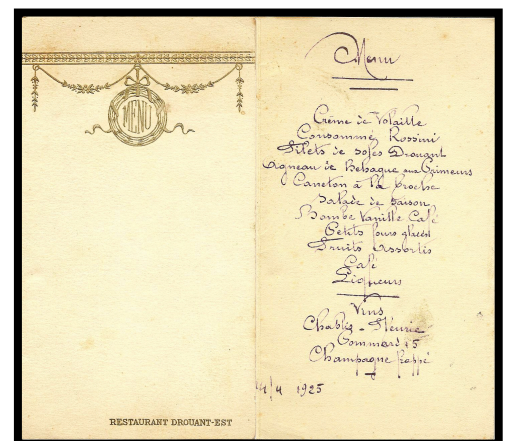 MENU
RESTAURANT DROUANT-EST
Menu
Crème de Volaille
Consommé Rossini
Filets de soles Drouant
Agneau de Behague aux Primeurs
Caneton à la broche
Salade de saison
Bombe Vanille Café
Petits fours glacés
Fruits assortis
Café
Liqueurs
Vins
Chablis - Fleurie
Pommard 15
Champagne frappé
4 1925